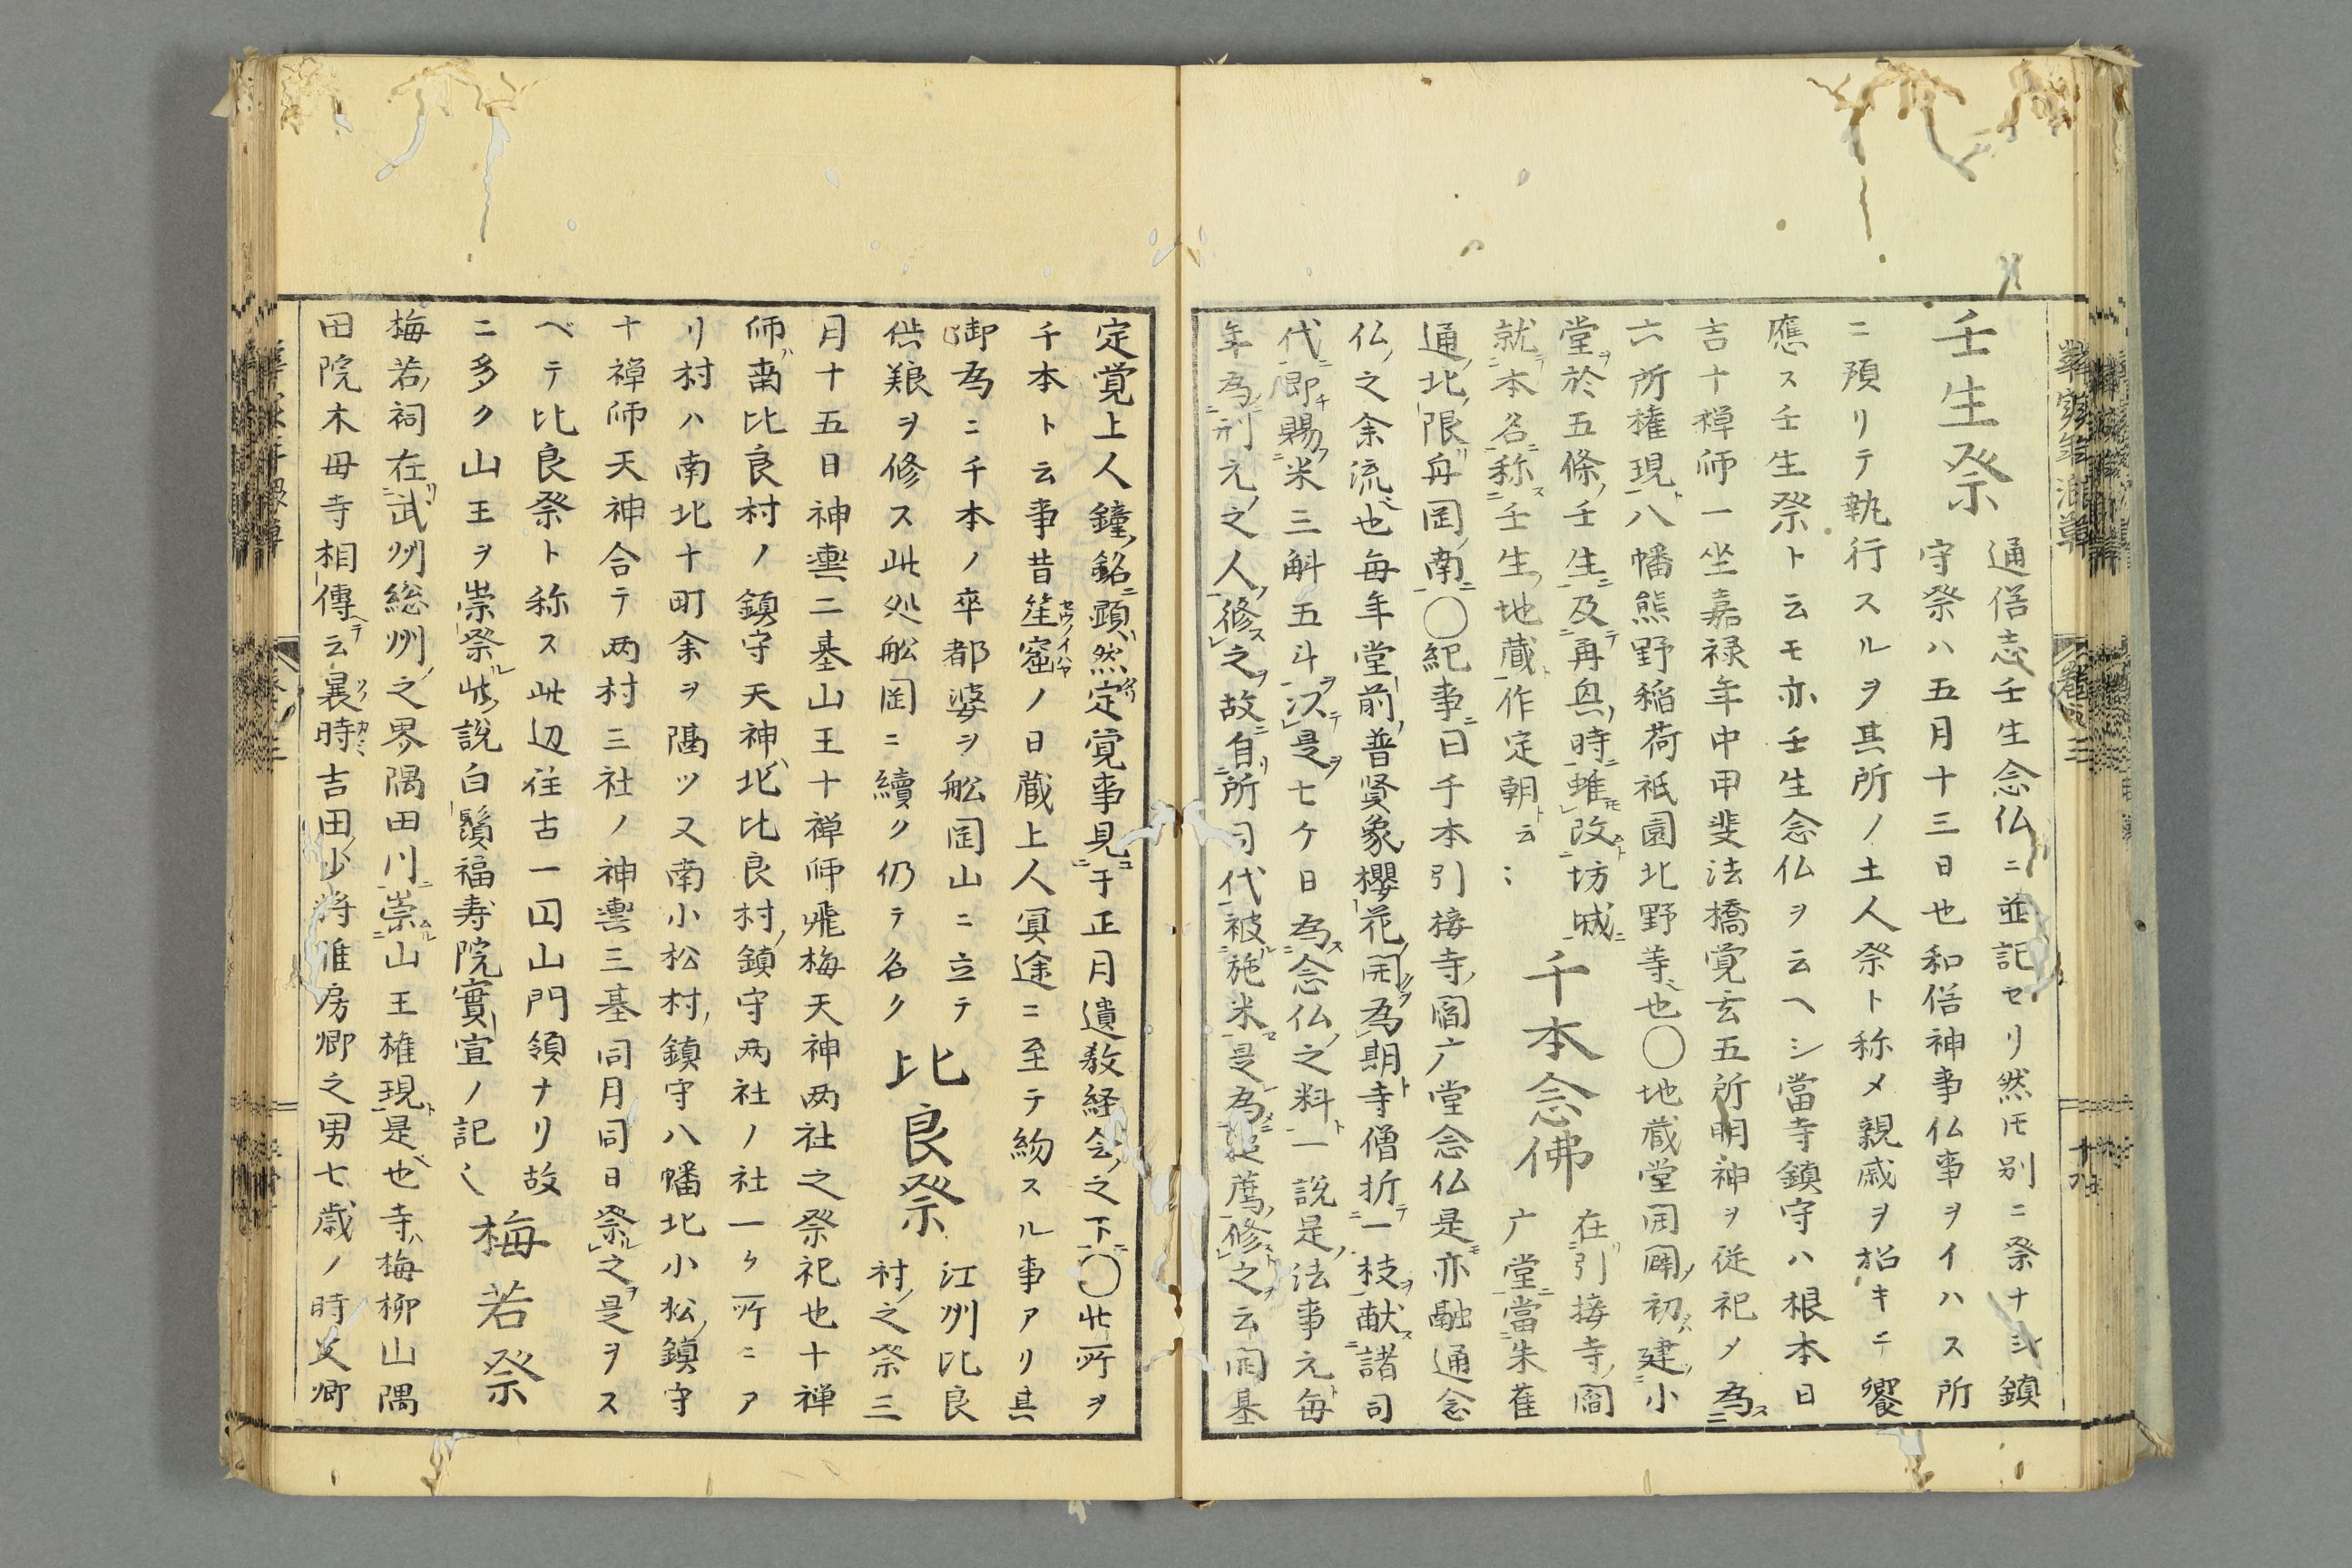 壬生祭
通俗志壬生念仏ニ並記セリ然𪜈別ニ祭ナシ鎮
守祭ハ五月十三日也和俗神事仏事ヲイハス所
ニ預リテ執行スルヲ其所ノ土人祭ト称メ親戚ヲ招キテ饗
應ス壬生祭ト云モ亦壬生念仏ヲ云ヘシ當寺鎮守ハ根本日
吉十禅師一坐嘉禄年中甲斐法橋覚玄五所明神ヲ従祀メ為
六所権現八幡熊野稲荷祇園北野等也〇地蔵堂開闢初建小
堂於五條壬生及再興時雖改坊城
就本名称壬生地蔵作定朝ト云〻
千本念佛
在引接寺閻
广堂當朱雀
通北限舟岡南〇紀事曰千本引接寺閻广堂念仏是亦融通念
仏之余流也毎年堂前普賢象櫻花開為期寺僧折一枝献諸司
代即賜米三斛五斗次是七ケ日為念仏之料一説是法事元毎
年為刑元之人修之故自所司代被施米是為追薦修之云開基
定覚上人鐘銘顕然定覚事見于正月遺教経会之下〇此所ヲ
千本ト云事昔笙窟ノ日蔵上人冥途ニ至テ紛スル事アリ其
御為ニ千本ノ卒都婆ヲ舩岡山ニ立テ
供粮ヲ修ス此処舩岡ニ續ク仍テ名ク
比良祭
江州比良
村之祭三
月十五日神輿二基山王十禅師飛梅天神両社之祭祀也十禅
師南比良村ノ鎮守天神北比良村鎮守両社ノ社一ケ所ニア
リ村ハ南北十町余ヲ隔ツ又南小松村鎮守八幡北小松鎮守
十禅師天神合テ两村三社ノ神輿三基同月同日祭之是ヲス
ベテ比良祭ト称ス此辺往古一囚山門領ナリ故
ニ多ク山王ヲ崇祭此説白鬚福寿院實宣ノ記〱
梅若祭
梅若祠在武州総州之界隅田川崇山王権現是也寺梅柳山隅
田院木母寺相傳云曩時吉田少将惟房卿之男七歳ノ時父卿